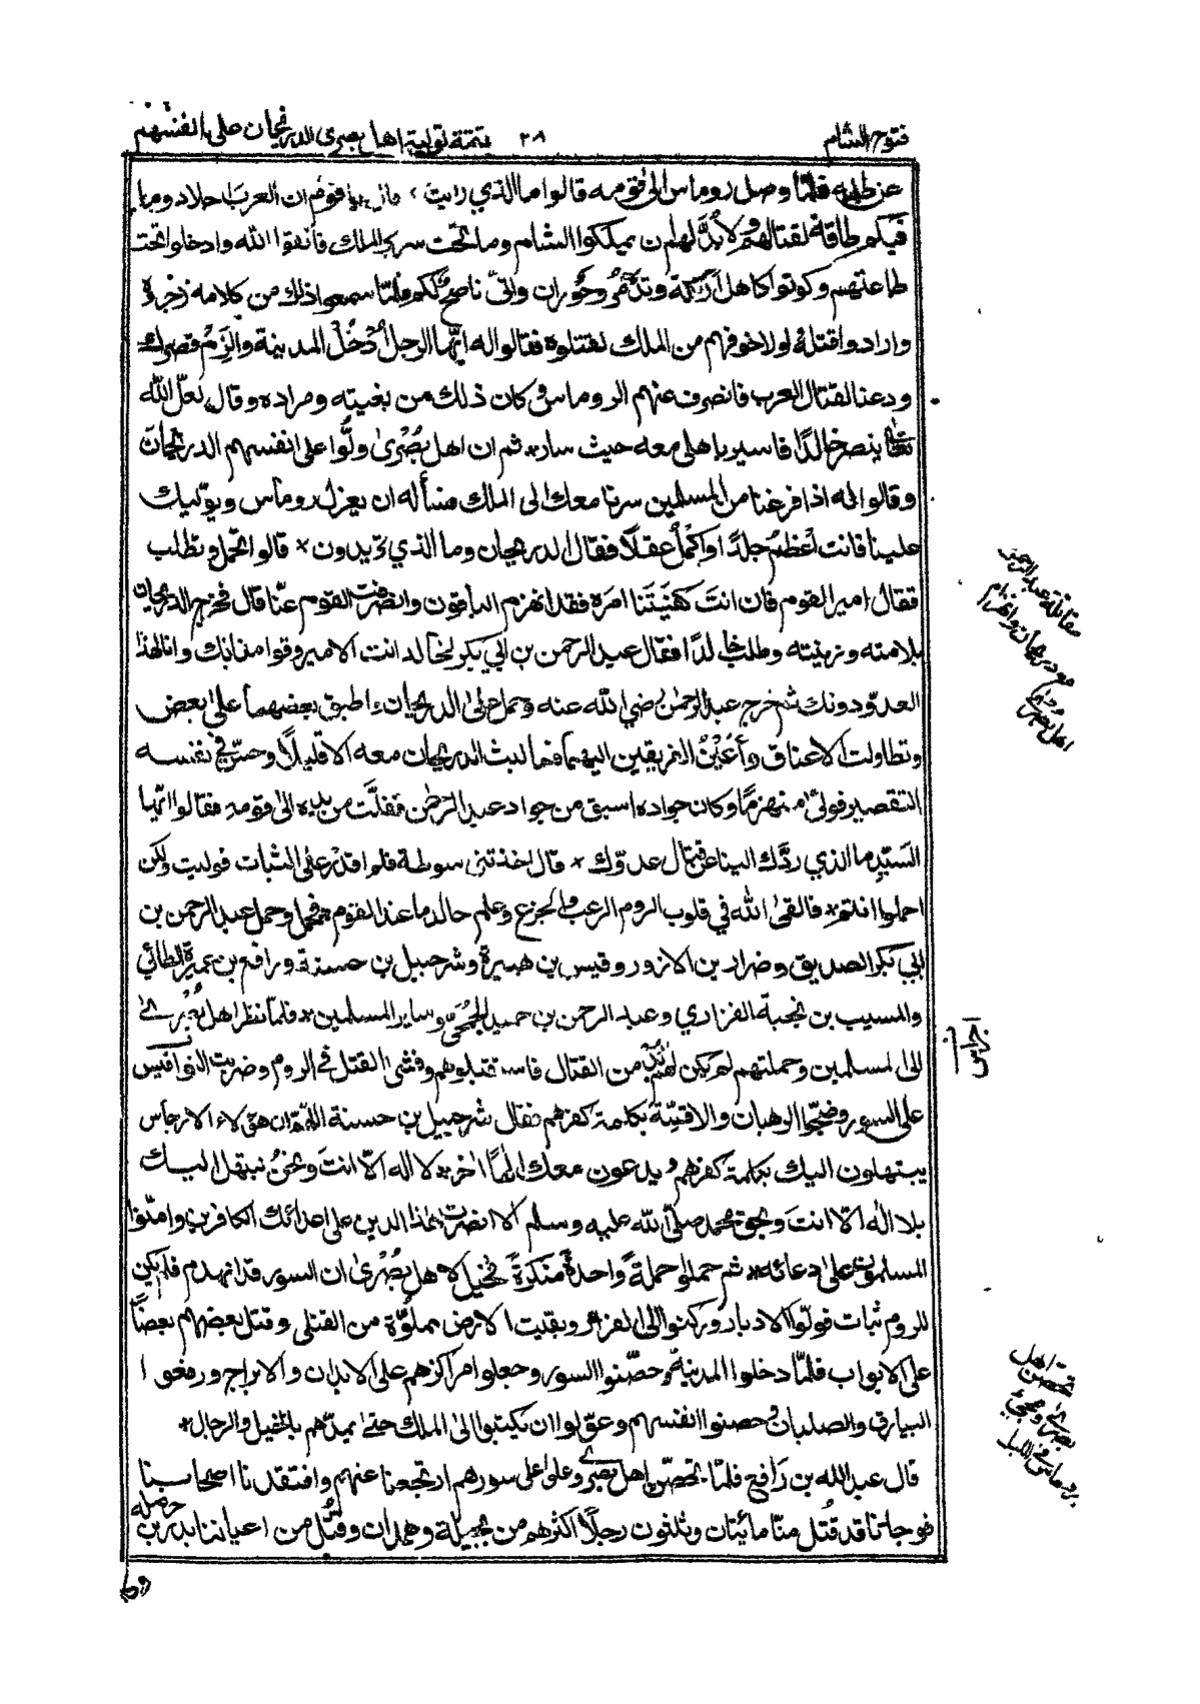 فتوح الشام ٢٨ تتمة تولية اهل بصرى الدريجان على انفسهم
عن طلبه فلمّا وصل روماس الى قومه قالوا ما الذي رايت قال يا قوم ان العرب اجلاد وما
فيكم طاقة لقتالهم ولا بُدَّ لهم ان يملكوا الشام وما تحت سرير الملك فاتقوا الله وادخلوا تحت
طاعتهم وكونوا كاهل اركة وتدمُر وحَوران وانّي ناصحٌ لكم فلمّا سمعوا ذلك من كلامه زجروهُ
وارادوا قتلهُ لولا خوفهم من الملك لقتلوه فقالوا له ايّها الرجل اُدخُل المدينة والزِم قصرك
ودعنا لقتال العرب فانصرف عنهم الروماس وكان ذلك من بغيته ومراده وقال لعلّ الله
تعالى ينصر خالدًا فاسير باهلي معه حيث سار* ثم ان اهل بُصْرىٰ ولُّوا على انفسهم الدريجان
وقالوا له اذا فرغنا من المسلمين سرنا معك الى الملك فنسأله ان يعزل روماس ويولّيك
علينا فانت اعظمُ جلدًا واكملُ عقلًا فقال الدريجان وما الذي تريدون* قالوا تحمل وتطلب
فقال امير القوم فان انتَ كفيتَنا امره فقد انهزم الباقون وانصرفت القوم عنّا قال فخرج الدريجان
بلامته وزينته وطلب خالدًا فقال عبد الرحمن بن ابي بكر لخالد انت الامير وقوامنا بك وانا لهذا
العدوّ دونك ثم خرج عبد الرحمٰن رضي الله عنه وحمل على الدريجان واطبق بعضهما على بعض
وتطاولت الاعناق وأعْيُنُ الفريقين اليهما فما لبث الدريجان معه الا قليلًا وحسّ في نفسه
التقصير فولىٰ منهزمًا وكان جواده اسبق من جواد عبد الرحمٰن ففلّت من يده الىٰ قومه فقالوا ايّها
السّيّد ما الذي ردّك الينا عن قتال عدوّك* قال اخذتني سوطة فلم اقدر على الثبات فوليت ولكن
احملوا انتم* فالقىٰ الله في قلوب الروم الرعب والجزع وعلم خالد ما عند القوم فحمل وحمل عبد الرحمن بن
ابي بكر الصديق وضرار بن الازور وقيس بن هبيرة وشرحبيل بن حسنة ورافع بن عميرة الطائي
والمسيب بن نجبة الفزاري وعبد الرحمن بن حميد الجُمَحيّ وساير المسلمين* فلمّا نظر اهل بُصْرىٰ
الى المسلمين وحملتهم لم يكن لهم بُدّ من القتال فاستقتلوهم وفشى القتل في الروم وضربت النواقيس
على السور وضجّوا الرهبان والاقسّة بكلمة كفرهم فقال شرحبيل بن حسنة اللّهمّ ان هؤلاء الارجاس
يبتهلون اليك بكلمة كفرهم ويدعون معك الٰهًا اٰخر* لا اله الّا انتَ ونحنُ نبتهل اليك
بلا اله الّا انتَ وبحق محمد صلّى الله عليه وسلم الا نصرت هذا الدين على اعدائك الكافرين وامّنوا
المسلمون على دعائه* ثم حملوا حملةً واحدةً منكرةً فخيل لاهل بُصْرىٰ ان السور قد انهدم فلم يكن
للروم ثبات فولّوا الادبار وركنوا الى الفرار وبقيت الارض مملوّة من القتلى وقتل بعضهم بعضًا
على الابواب فلمّا دخلوا المدينة حصّنوا السور وجعلوا مراكزهم على الابدان والابراج ورفعوا
البيارق والصلبان وحصنوا انفسهم وعوّلوا ان يكتبوا الى الملك حتى يمدّهم بالخيل والرجال*
قال عبد الله بن رَافع فلمّا تحصّن اهل بصرى وعلوا على سورهم ارتجعنا عنهم وافتقدنا اصحابنا
فوجدنا قد قُتل منّا مائيتان وثلثون رجلًا اكثرهم من بجيلة وهمدان وقُتل من اعياننا بدر بن حرملة
مقاتلة عبد الرحمن
مع دريجان وانهزام
اهل بصرى
تحصّن اهل
بصرىٰ ومجيء
روماس في الليل